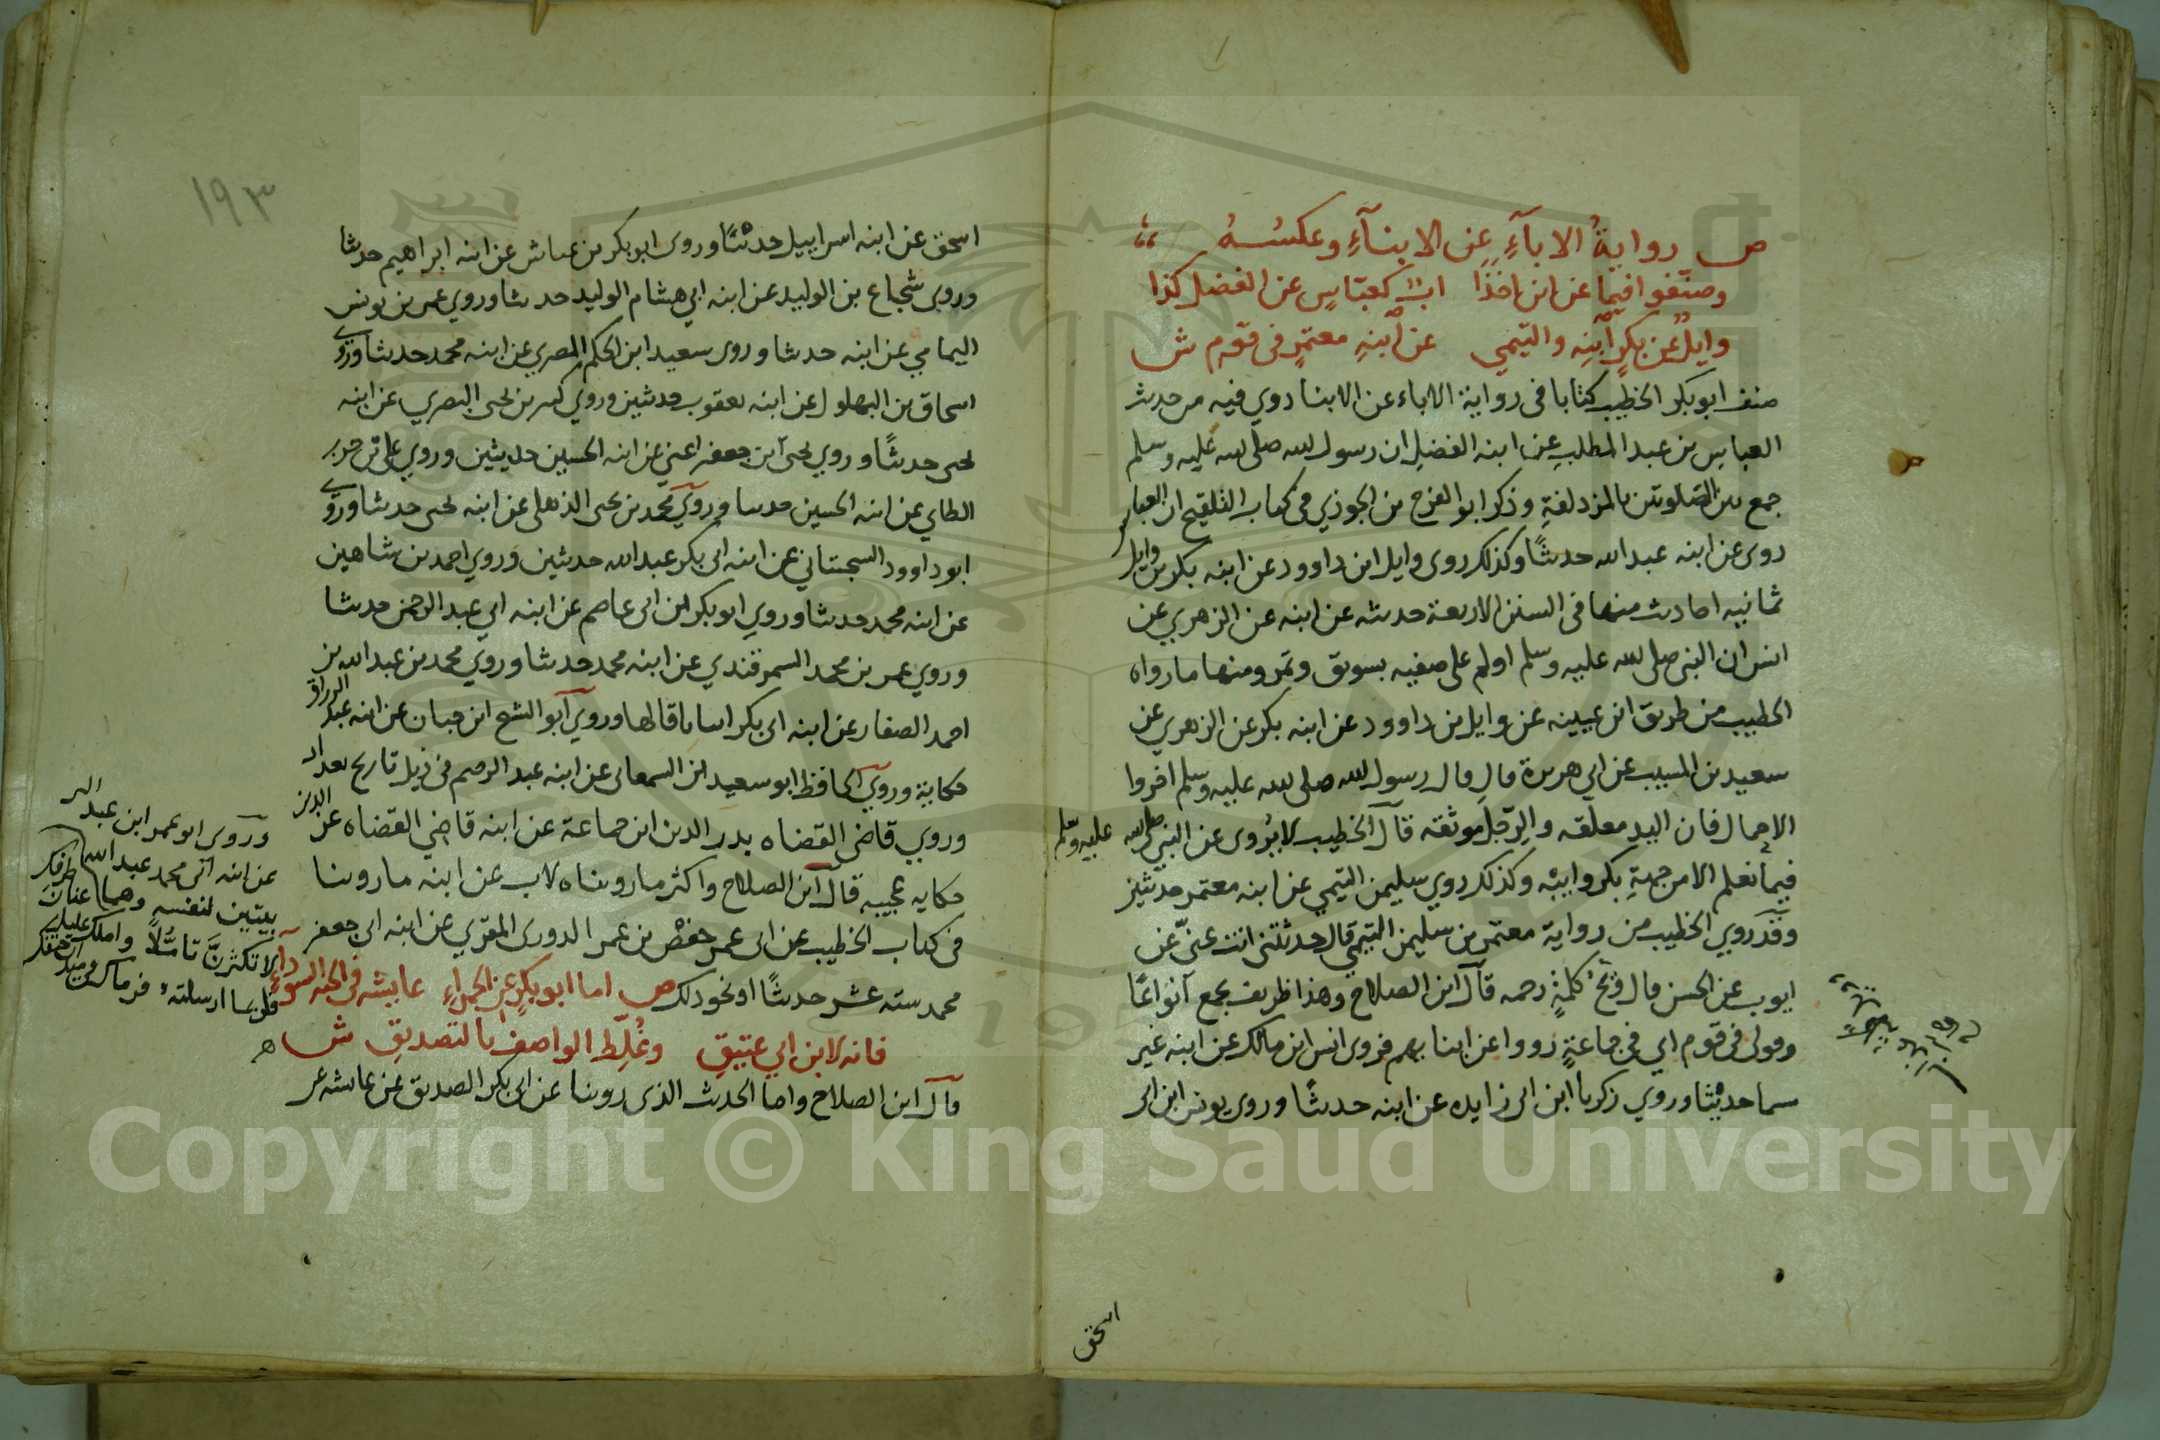 ص رواية الاباءِ عن الابناءِ وعكسُهُ
وصنّفوا فيما عن ابن اخذا ابٌ كعبّاسٍ عن الفضل كذا
وايلٌ عن بكرٍ ابنِه والتيمي عن ابنِهِ معتمرٍ في قوم ش
صنف ابو بكر الخطيب كتابا في رواية الاباء عن الابنا روي فيه من حديث
العباس بن عبد المطلب عن ابنه الفضل ان رسول الله صلى الله عليه وسلم
جمع بين الصلوتين بالمزدلفة وذكر ابو الفرج بن الجوزي في كتاب التلقيح ان العباس
روى عن ابنه عبد الله حديثًا وكذلك روى وايل ابن داوود عن ابنه بكر بن وايل
ثمانيه احاديث منها في السنن الاربعة حديثه عن ابنه عن الزهري عن
انس ان النبي صلى الله عليه وسلم اولم على صفيه بسويق وتمر ومنها ما رواه
الخطيب من طريق ابن عيينه عن وايل بن داوود عن ابنه بكر عن الزهري عن
سعيد بن المسيب عن ابي هريرة قال قال رسول الله صلى الله عليه وسلم اخروا
الاحمال فان اليد معلقه والرجل موثقه قال الخطيب لا يُروى عن النبي صلى الله عليه وسلم
فيما نعلم الا من جهةِ بكر وابيه وكذلك روي سليمن التيمي عن ابنه معتمر حديثين
وقد روي الخطيب من رواية معتمر بن سليمن التيمي قال حدثتني انت عنّي عن
ايوب عن الحسن قال ويحٌ كلمةٍ رحمه قال ابن الصلاح وهذا ظريف يجمع انواعًا
وقولى في قوم اي في جماعةٍ رووا عن ابنا يهم فروى انس ابن مالك عن ابنه غير
سما حديثا وروي زكريا ابن ابي زايده عن ابنه حديثًا وروى يونس ابن ابي
اسحق
١٩٣
اسحق عن ابنه اسراييل حديثًا وروى ابو بكر بن عياش عن ابنه ابراهيم حديثا
وروى شجاع بن الوليد عن ابنه ابي هشام الوليد حديثا وروي عمر بن يونس
اليمامي عن ابنه حديثا وروى سعيد ابن الحكم المصري عن ابنه محمد حديثا وروي
اسحاق بن البهلول عن ابنه يعقوب حديثين وروي كثير بن يحيى البصري عن ابنه
يحيى حديثًا وروي يحيى ابن جعفر اعني عن ابنه الحسين حديثين وروي علي بن حرب
الطاي عن ابنه الحسين حديثا وروي محمد بن يحيى الذهلي عن ابنه يحيى حديثا وروي
ابو داوود السجستاني عن ابنه ابي بكر عبد الله حديثين وروي احمد بن شاهين
عن ابنه محمد حديثا وروي ابو بكر ابن ابي عاصم عن ابنه ابي عبد الرحمن حديثا
وروي عمر بن محمد السمرقندي عن ابنه محمد حديثا وروي محمد بن عبد الله بن
احمد الصفار عن ابنه ابي بكر ابياتا قالها وروي ابو الشيخ ابن حبان عن ابنه عبد الرزاق
حكاية وروي الحافظ ابو سعيد ابن السمعاني عن ابنه عبد الرحيم في ذيل تاريخ بغداد
وروي قاضي القضاه بدر الدين ابن جماعة عن ابنه قاضي القضاه عز الدين
حكايه عجيبه قال ابن الصلاح واكثر ما رويناه لاب عن ابنه ما روينا
في كتاب الخطيب عن ابي عمر حفص بن عمر الدوري المقري عن ابنه ابي جعفر
محمد سته عشر حديثًا او نحو ذلك ص اما ابو بكرٍ عن الحمراءِ عايشه في الحبّه السوداءِ
فانه لابن ابي عتيقِ وغُلّط الواصفُ بالتصديقِ ش
قال ابن الصلاح واما الحديث الذي روينا عن ابي بكر الصديق عن عايشه عن
وروى ابو عمر ابن عبد البر
عن ابنه ابي محمد عبد الله
بيتين لنفسه وهما
لا تكثرنَّ تاملًا واملك عليك عنان طرفك
فلربما ارسلته فرماك في ميدان حتفك
Copyright © King Saud University